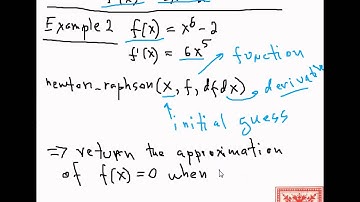 Example 2 f(x) = x⁶ - 2
f'(x) = 6x⁵
function
newton_raphson(x, f, dfdx)
derivative
initial guess
=> return the approximation
of f(x) = 0 when